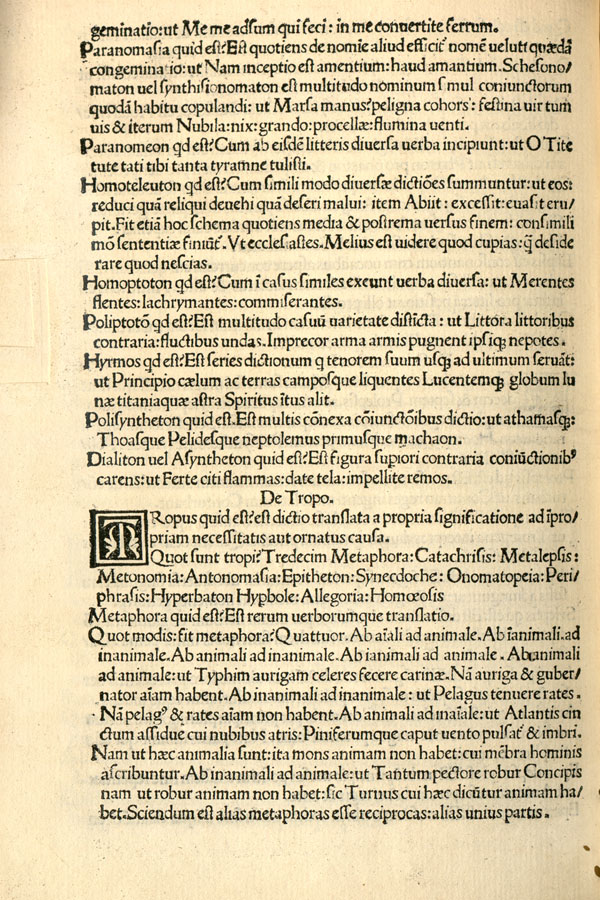 geminatio:ut Me me adsum qui feci: in me conuertite ferrum.
Paranomasia quid est?Est quotiens de nomīe aliud efficit᷑ nomē ueluti quædā
congemina io:ut Nam inceptio est amentium:haud amantium.Scheſono/
maton uel synthisionomaton est multitudo nominum s mul coniunctorum
quodā habitu copulandi: ut Marsa manus?peligna cohors: festina uir tum
uis & iterum Nubila:nix:grando:procellæ:flumina uenti.
Paranomeon qd est?Cum ab eisdē litteris diuersa uerba incipiunt:ut O Tite
tute tati tibi tanta tyramne tulisti.
Homoteleuton qd est?Cum simili modo diuersæ dictiōes summuntur:ut eos:
reduci quā reliqui deuehi quā deseri malui: item Abiit: excessit:euasit eru/
pit.Fit etiā hoc schema quotiens media & postrema uersus finem: consimili
mō sententiæ finiūt᷑. Vt ecclesiastes.Melius est uidere quod cupias:q̄ deside
rare quod nescias.
Homoptoton qd est?Cum ī casus similes exeunt uerba diuersa: ut Merentes
flentes:lachrymantes:commiserantes.
Poliptotō qd est?Est multitudo casuū uarietate distīcta: ut Littora littoribus
contraria:fluctibus undas.Imprecor arma armis pugnent ipsiq; nepotes.
Hyrmos qd est?Est series dictionum q tenorem suum usq; ad ultimum seruāt:
ut Principio cælum ac terras camposque liquentes Lucentemq; globum lu
næ titaniaquæ astra Spiritus ītus alit.
Polisyntheton quid est.Est multis cōnexa cōiunctōibus dictio:ut athamasq;:
Thoasque Pelidesque neptolemus primusque machaon.
Dialiton uel Asyntheton quid est?Est figura supiori contraria coniūctionibꝰ
carens:ut Ferte citi flammas:date tela:impellite remos.
De Tropo.
TRopus quid est?est dictio translata a propria significatione ad īpro/
priam necessitatis aut ornatus causa.
Quot sunt tropi?Tredecim Metaphora:Catachrisis: Metalepsis:
Metonomia:Antonomasia:Epitheton:Synecdoche: Onomatopeia:Peri/
phrasis:Hyperbaton Hypbole:Allegoria:Homœosis
Metaphora quid est?Est rerum uerborumque translatio.
Quot modis:fit metaphora?Quattuor.Ab aīali ad animale.Ab īanimali.ad
inanimale.Ab animali ad inanimale. Ab ianimali ad animale. Ab animali
ad animale:ut Typhim aurigam celeres fecere carinæ.Nā auriga & guber/
nator aīam habent.Ab inanimali ad inanimale: ut Pelagus tenuere rates.
Nā pelagꝰ & rates aīam non habent.Ab animali ad inaīale:ut Atlantis cin
ctum assidue cui nubibus atris:Piniferumque caput uento pulsat᷑ & imbri.
Nam ut hæc animalia sunt:ita mons animam non habet:cui mēbra hominis
ascribuntur.Ab inanimali ad animale:ut Tantum pectore robur Concipis
nam ut robur animam non habet:sic Turnus cui hæc dicūtur animam ha/
bet.Sciendum est alias metaphoras esse reciprocas:alias unius partis.